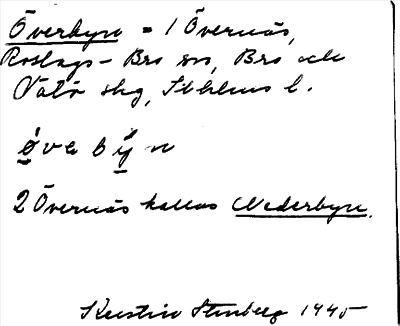 Överbyn = 1 Övernäs,
Roslags-Bro sn, Bro och
Vätö skg, Sthlms l.
ø̀vabýn
2 Övernäs kallas Nederbyn.
Kerstin Stenberg 1945